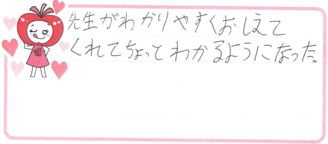 先生がわかりやすくおしえて
くれてちょっとわかるようになった。